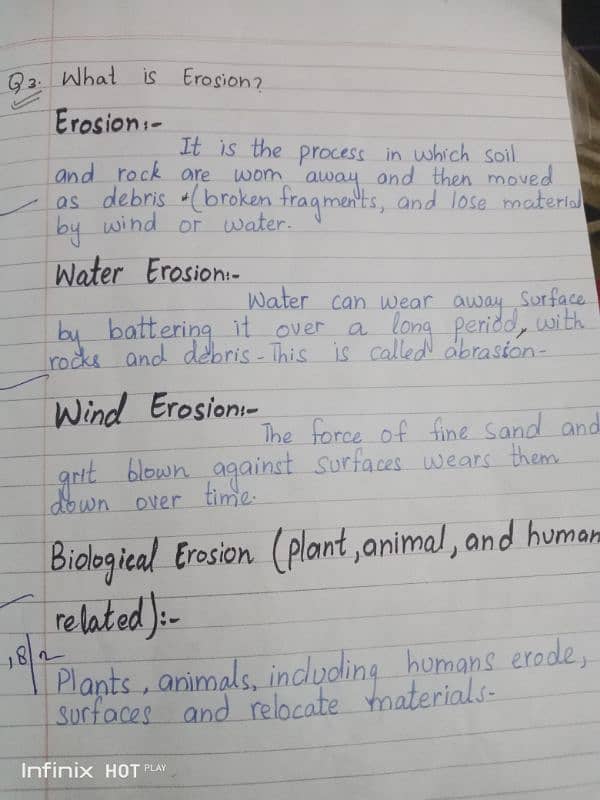 Q3. What is Erosion?
Erosion:-
It is the process in which soil
and rock are worn away and then moved
as debris (broken fragments, and lose material
by wind or water.
Water Erosion:-
Water can wear away surface
by battering it over a long period, with
rocks and debris - This is called abrasion-
Wind Erosion:-
The force of fine sand and
grit blown against surfaces wears them
down over time.
Biological Erosion (plant, animal, and human
related):-
Plants, animals, including humans erode,
surfaces and relocate materials-
Infinix HOT PLAY